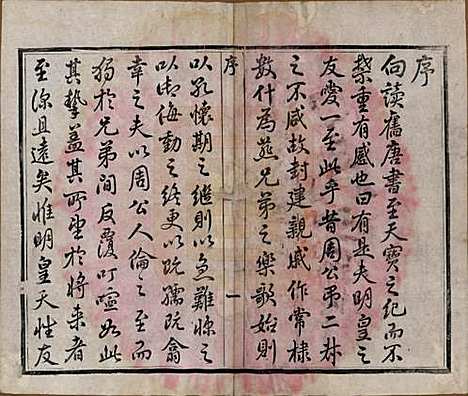 序
向讀舊唐書至天寶之紀而不
禁重有感也曰有是夫明皇之
友愛一至此乎昔周公弔二叔
之不咸故封建親戚作常棣
數什為燕兄弟之樂歌始則
序
一
以孔懷期之繼則以急難悚之
以御侮動之終更以既孺既翕
幸之夫以周公人倫之至而
猶於兄弟間反覆叮嚀如此
其摯蓋其所望於將來者
至深且遠矣惟明皇天性友